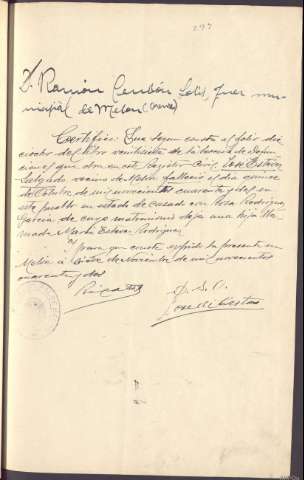 297
D. Ramón Cendón Solis, Juez mu-
nicipal de Melon (Orense)
Certifico: Que segun consta al folio diez
ciocho del libro veintisiete de la Seccion de Defun-
ciones que obra en este Registro Civil, José Estevez
Salgado vecino de Melon falleció el dia quince
de Octubre de mil novecientos cuarenta y dos en
este pueblo en estado de casado con Rosa Rodriguez
Garcia de cuyo matrimonio deja una hija lla-
mada María Estevez Rodriguez.
Y para que conste expido la presente en
Melón a siete de Noviembre de mil novecientos
cuarenta y dos
D. S. O.
José de